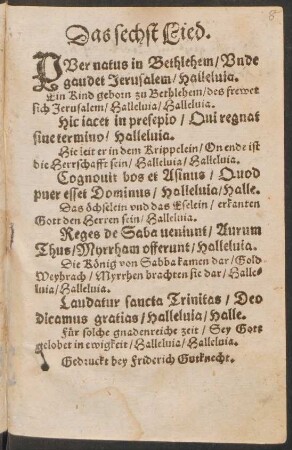 8
Das sechst Lied.
PVer natus in Bethlehem/Vnde
gaudet Jerusalem/Halleluia.
Ein Kind geborn zu Bethlehem/des frewet
sich Jerusalem/Halleluia/Halleluia.
Hic iacet in presepio/Qui regnat
sine termino/Halleluia.
Hie leit er in dem Krippelein/On ende ist
die Herrschafft sein/Halleluia/Halleluia.
Cognouit bos et Asinus/Quod
puer esset Dominus/Halleluia/Halle.
Das öchselein vnd das Eselein/erkanten
Gott den Herren sein/Halleluia.
Reges de Saba veniunt/Aurum
Thus/Myrrham offerunt/Halleluia.
Die König von Sabba kamen dar/Gold
Weyhrach/Myrrhen brachten sie dar/Halle-
luia/Halleluia.
Laudatur sancta Trinitas/Deo
dicamus gratias/Halleluia/Halle.
Für solche gnadenreiche zeit/Sey Gott
gelobet in ewigkeit/Halleluia/Halleluia.
Gedruckt bey Friderich Gutknecht.